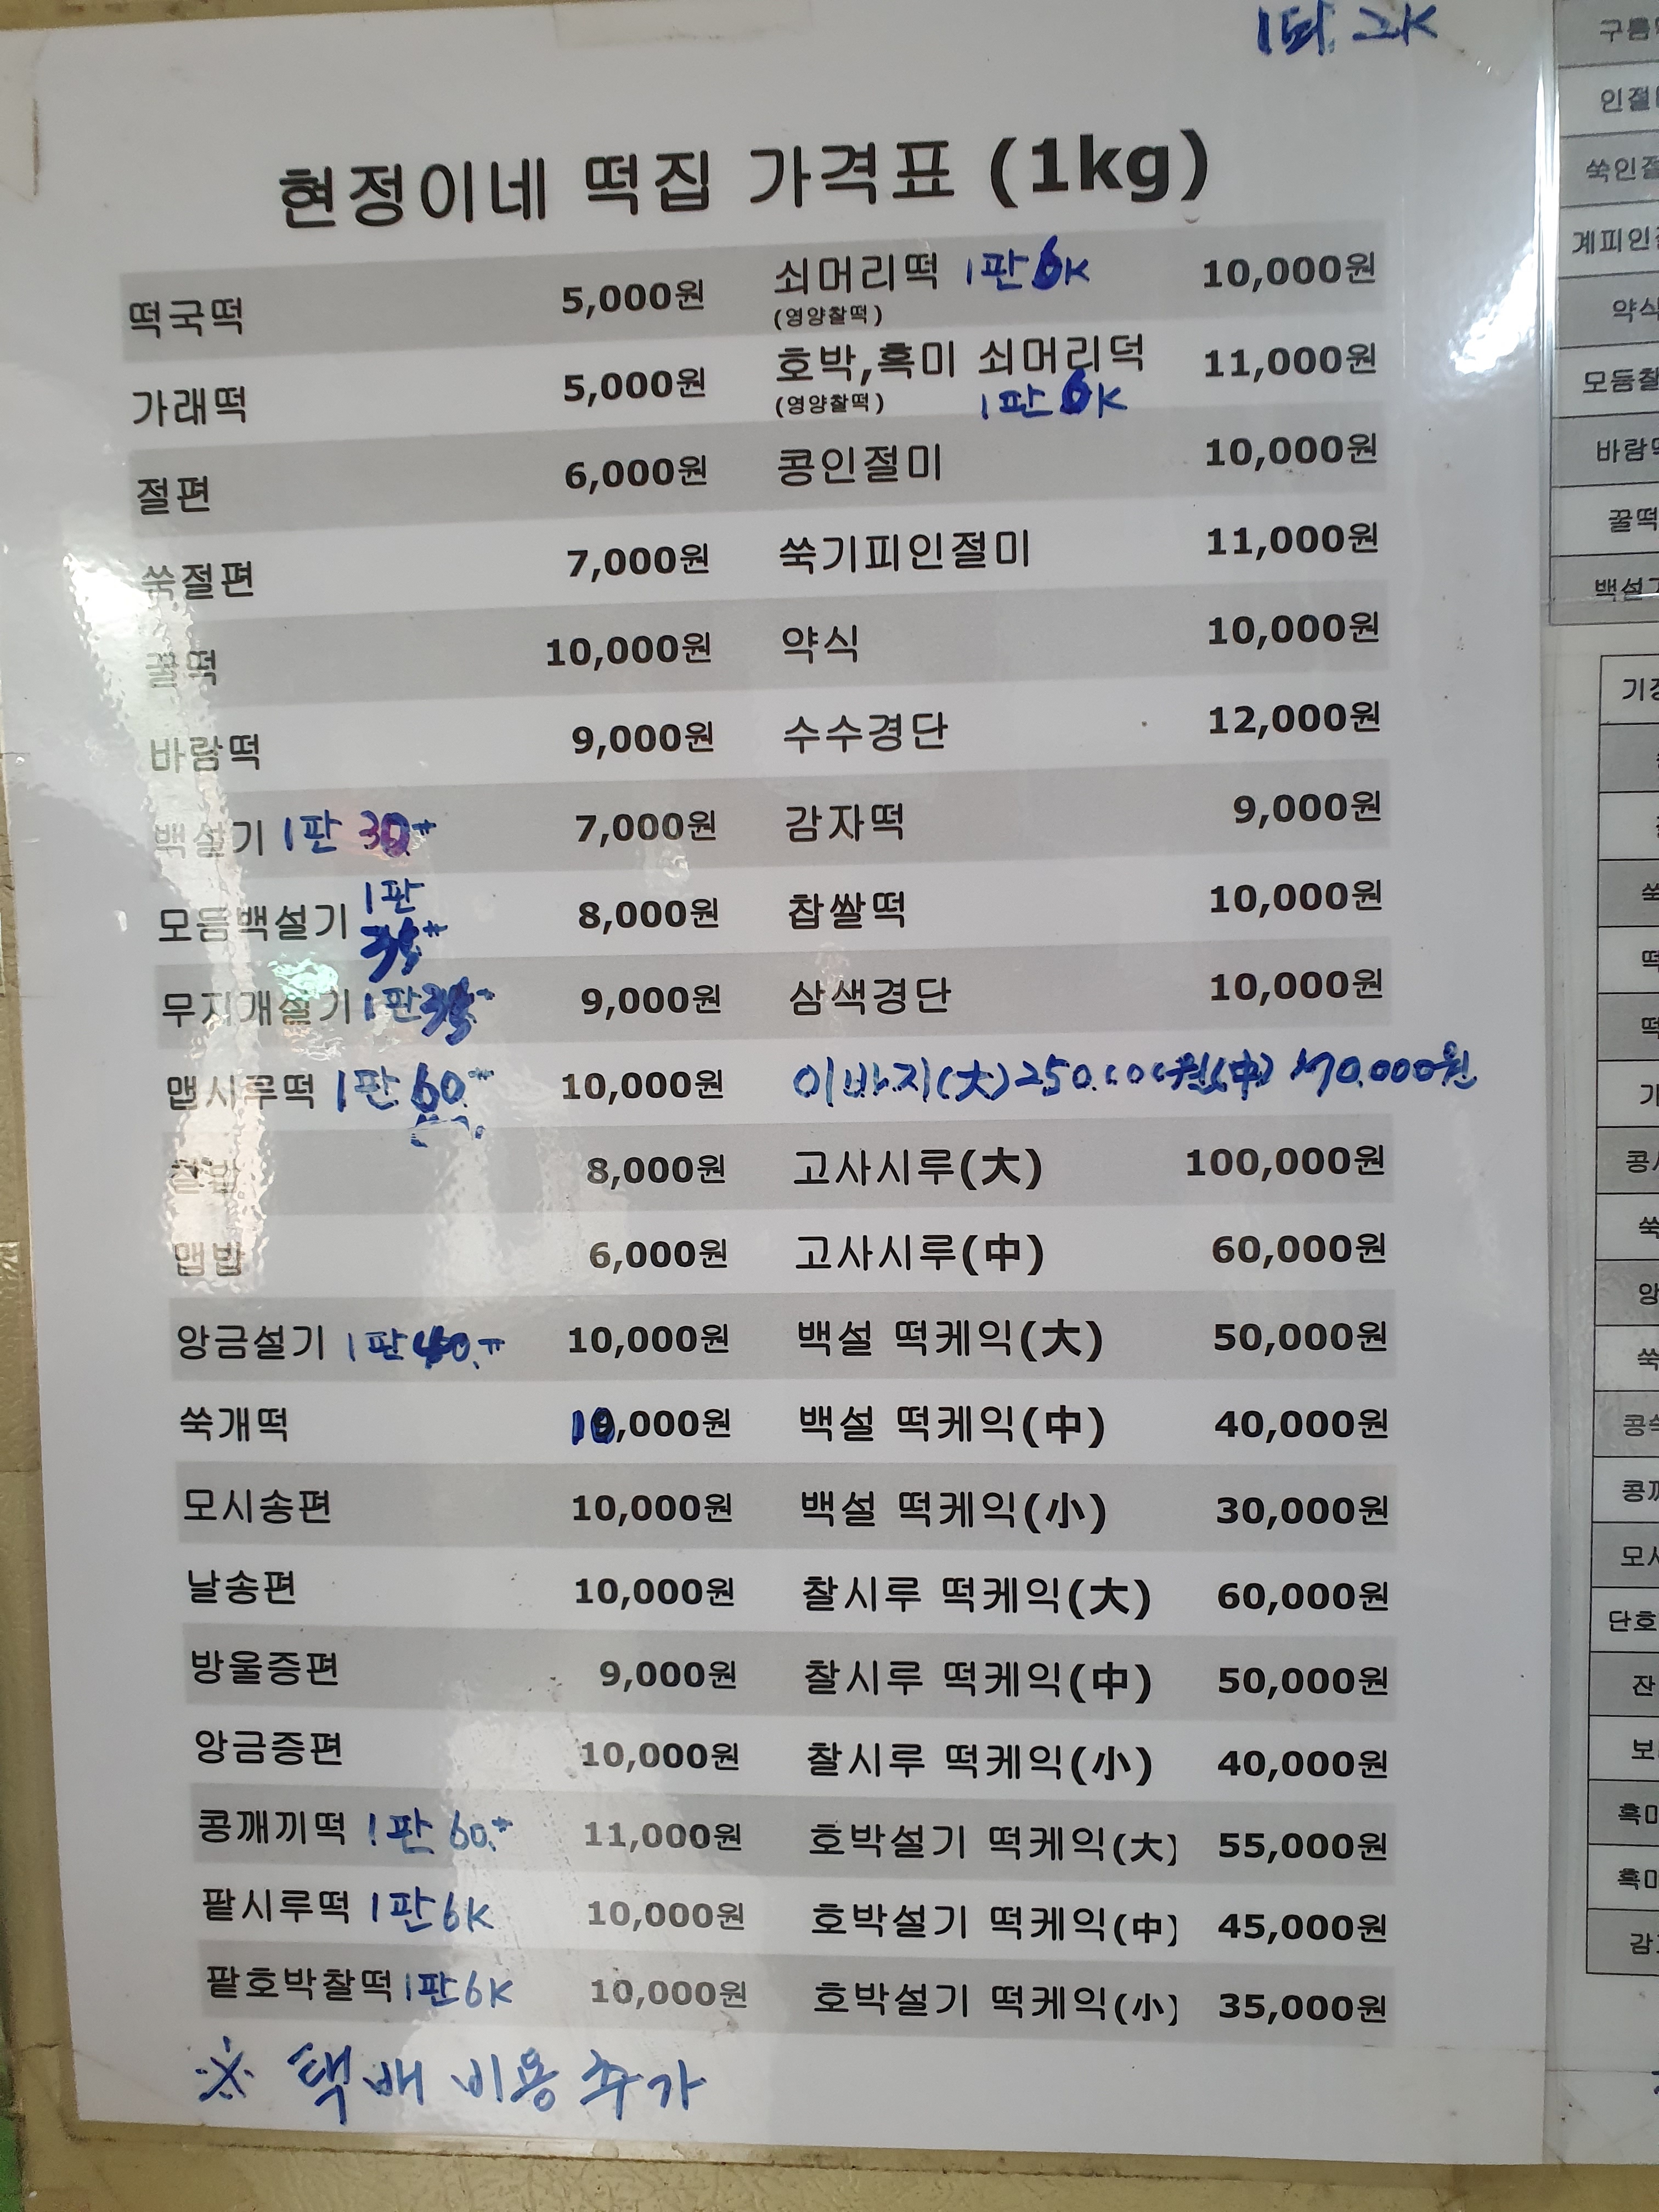 1되. 2K
현정이네 떡집 가격표 (1kg)
떡국떡 5,000원 쇠머리떡 1판 6K 10,000원
(영양찰떡)
가래떡 5,000원 호박,흑미 쇠머리덕 11,000원
(영양찰떡) 1판 6K
절편 6,000원 콩인절미 10,000원
쑥절편 7,000원 쑥기피인절미 11,000원
꿀떡 10,000원 약식 10,000원
바람떡 9,000원 수수경단 12,000원
백설기 1판 30 7,000원 감자떡 9,000원
모듬백설기 1판 35 8,000원 찹쌀떡 10,000원
무지개설기 1판 35 9,000원 삼색경단 10,000원
맵시루떡 1판 60 10,000원 이바지(大) 250.000원(中) 170.000원
찰밥 8,000원 고사시루(大) 100,000원
맵밥 6,000원 고사시루(中) 60,000원
앙금설기 1판 40 10,000원 백설 떡케익(大) 50,000원
쑥개떡 10,000원 백설 떡케익(中) 40,000원
모시송편 10,000원 백설 떡케익(小) 30,000원
날송편 10,000원 찰시루 떡케익(大) 60,000원
방울증편 9,000원 찰시루 떡케익(中) 50,000원
앙금증편 10,000원 찰시루 떡케익(小) 40,000원
콩깨끼떡 1판 60 11,000원 호박설기 떡케익(大) 55,000원
팥시루떡 1판 6K 10,000원 호박설기 떡케익(中) 45,000원
팥호박찰떡 1판 6K 10,000원 호박설기 떡케익(小) 35,000원
※ 택배 비용 추가
구름
인절
쑥인절
계피인
약식
모듬찰
바람
꿀떡
백설
쑥
떡
떡
쑥
쑥
단호
잔
흑미
흑미